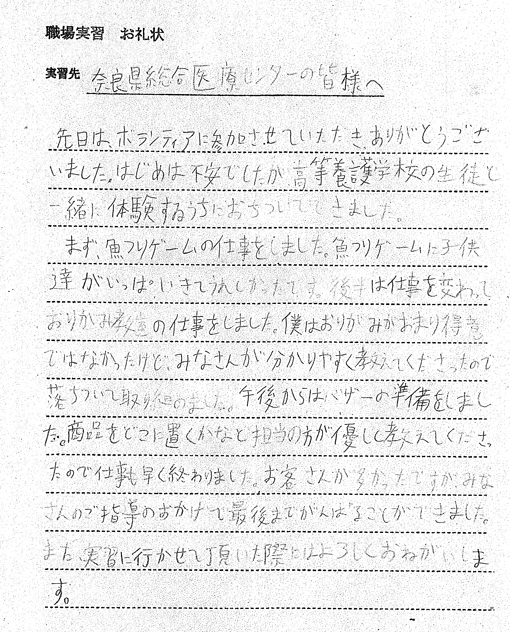 職場実習　お礼状
実習先 奈良県総合医療センターの皆様へ
先日は、ボランティアに参加させていただき、ありがとうござ
いました。はじめは不安でしたが高等養護学校の生徒と
一緒に体験するうちにおちついてできました。
まず、魚つりゲームの仕事をしました。魚つりゲームに子供
達がいっぱいきてうれしかったです。後半は仕事を変わって
おりがみ教室の仕事をしました。僕はおりがみがあまり得意
ではなかったけど、みなさんが分かりやすく教えてくださったので
落ちついて取り組めました。午後からはバザーの準備をしまし
た。商品をどこに置くかなど担当の方が優しく教えてくださっ
たので仕事も早く終わりました。お客さんが多かったですが、みな
さんのご指導のおかげで最後までがんばることができました。
また実習に行かせて頂いた際にはよろしくおねがいしま
す。